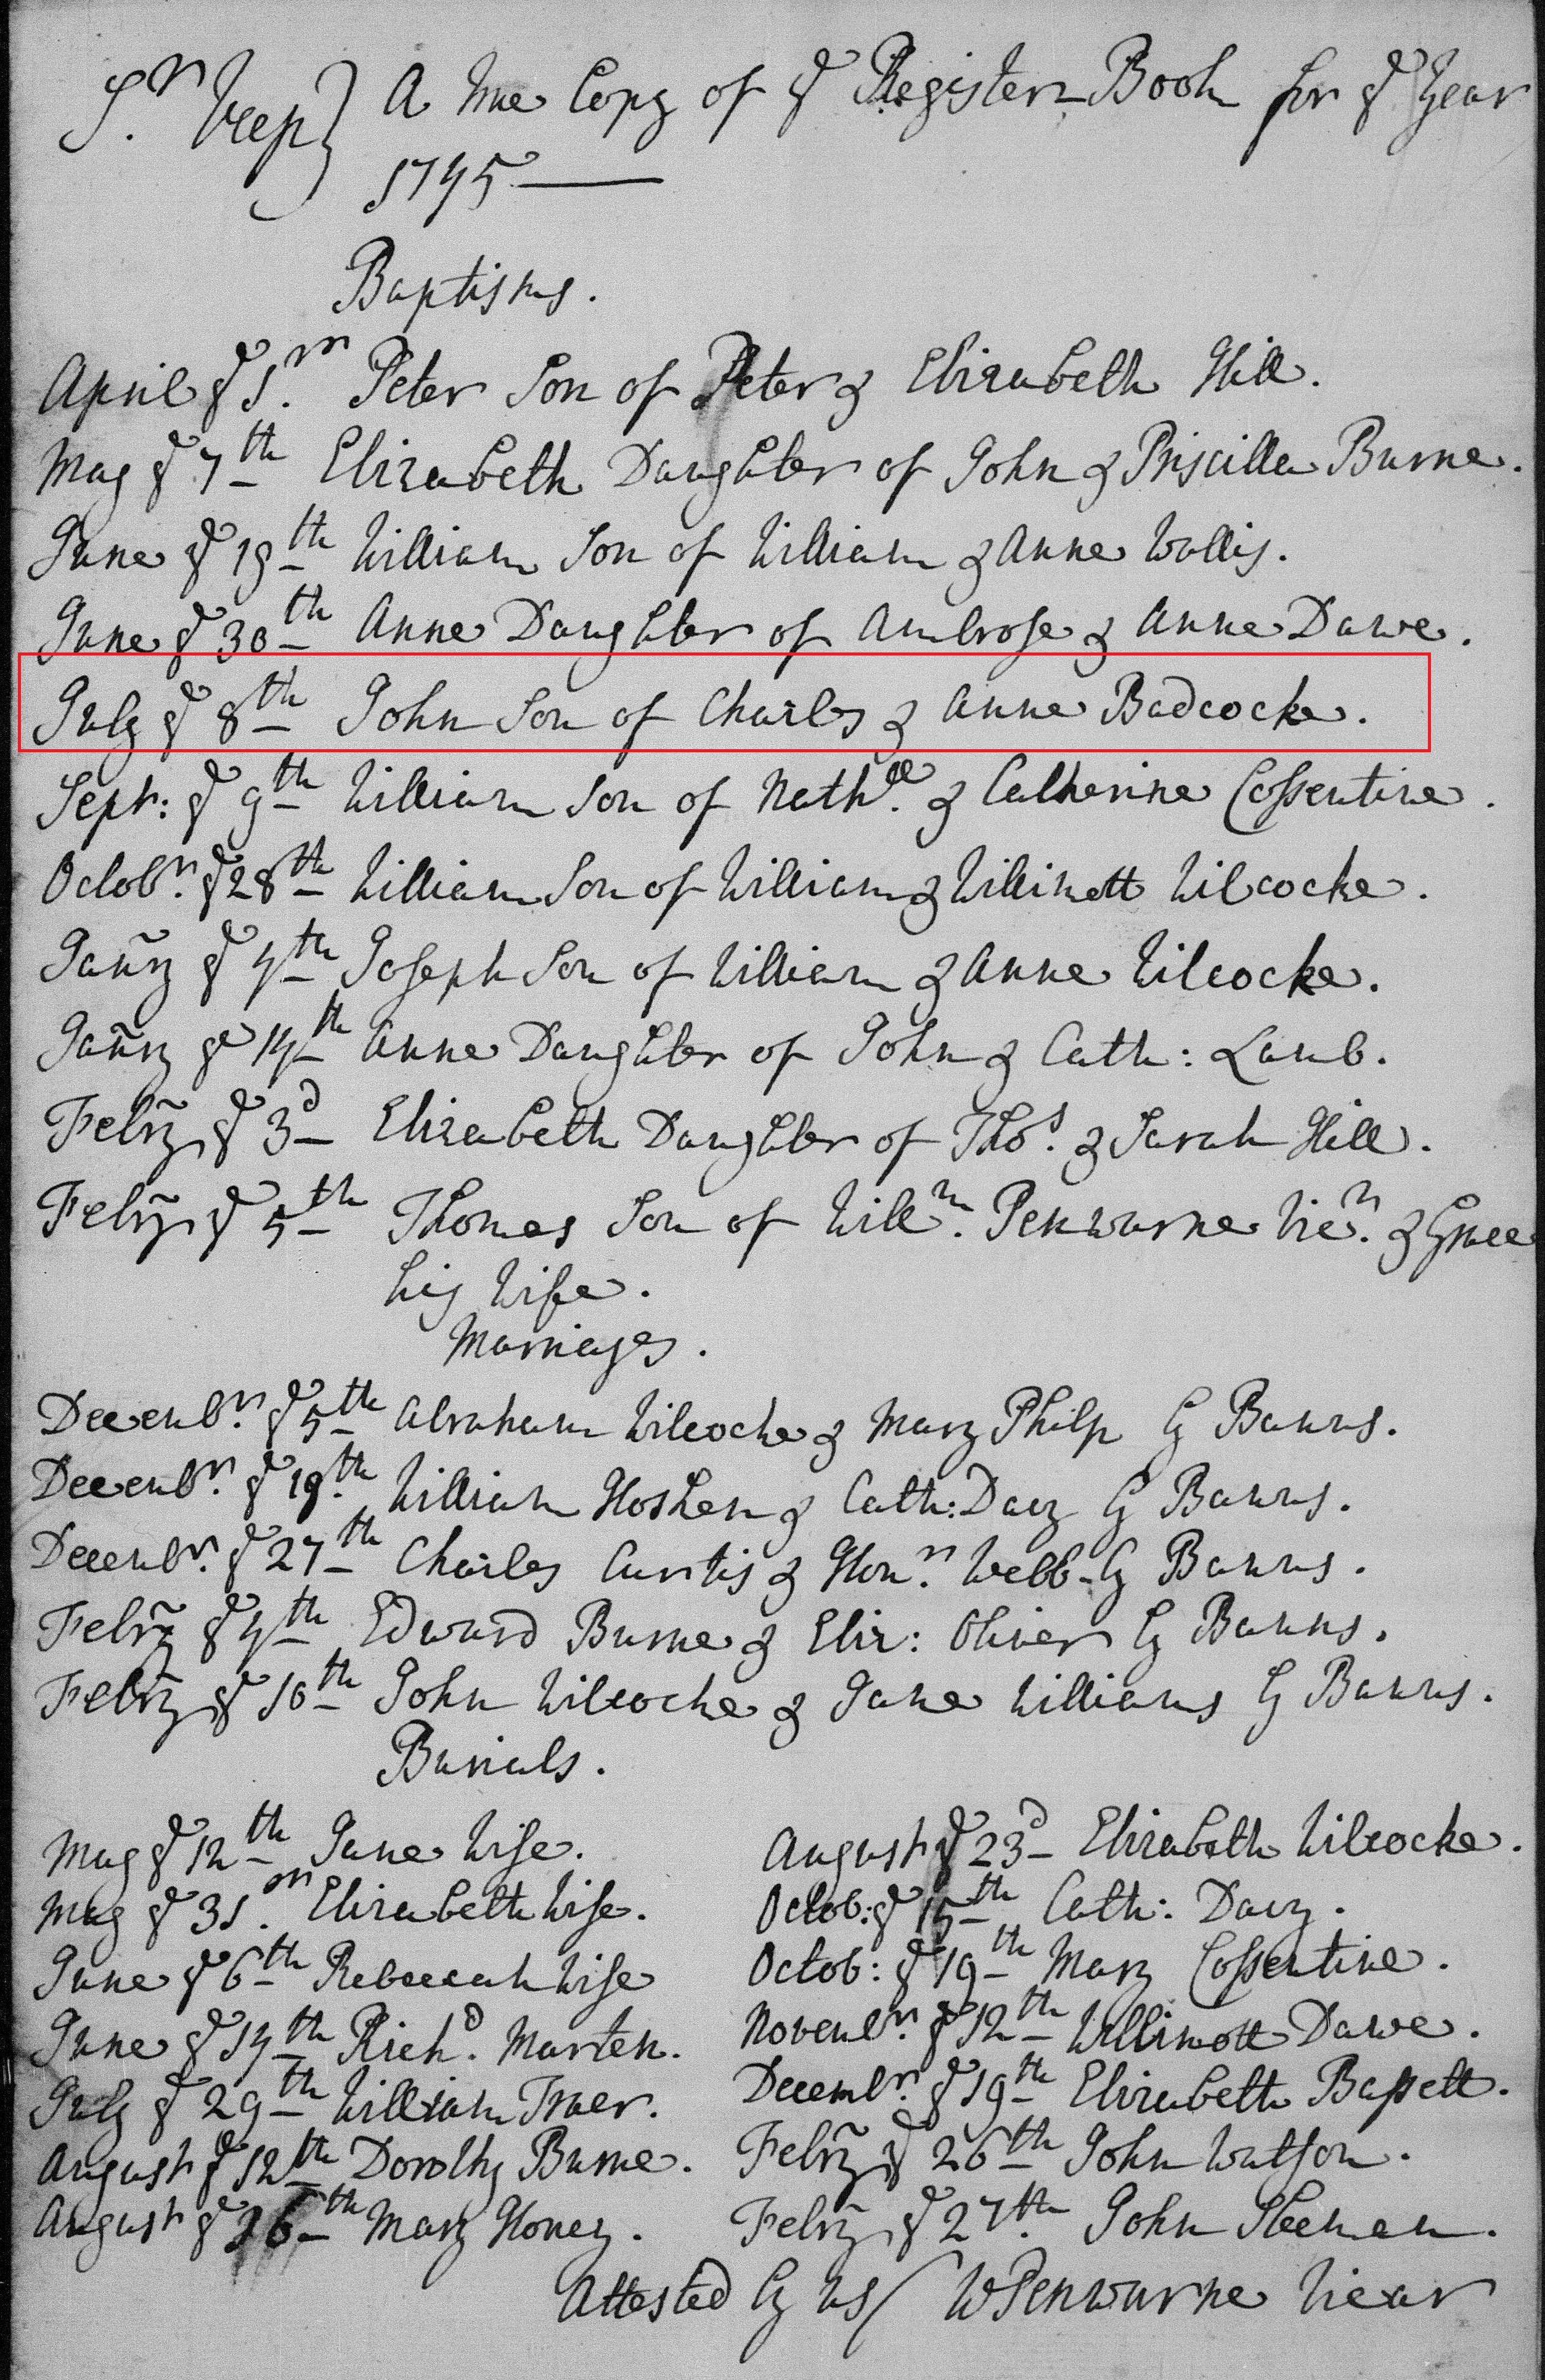 St. Veep } A true Copy of ye Register Book for ye Year
1745
Baptisms.
April ye 1st. Peter Son of Peter & Elizabeth Hill.
May ye 7th Elizabeth Daughter of John & Priscilla Burne.
June ye 19th William Son of William & Anne Wallis.
June ye 30th Anne Daughter of Ambrose & Anne Dawe.
July ye 8th John Son of Charles & Anne Badcocke.
Septr: ye 9th William Son of Nathll. & Catherine Cossentine.
Octobr. ye 28th William Son of William & Willmett Wilcocke.
Janry ye 4th Joseph Son of William & Anne Wilcocke.
Janry ye 14th Anne Daughter of John & Cath: Lamb.
Febry ye 3d Elizabeth Daughter of Thos. & Sarah Hill.
Febry ye 5th Thomas Son of Willm. Penwarne Vicr. & Grace
his Wife.
Marriages.
Decembr. ye 5th Abraham Wilcocke & Mary Philp by Banns.
Decembr. ye 19th William Hosken & Cath: Davy by Banns.
Decembr. ye 27th Charles Curtis & Honr. Webb by Banns.
Febry ye 4th Edward Burne & Eliz: Oliver by Banns.
Febry ye 10th John Wilcocke & Jane Williams by Banns.
Burials.
May ye 12th Jane Wise.
May ye 31st. Elizabeth Wise.
June ye 6th Rebeccah Wise
June ye 14th Richd. Marten.
July ye 29th William
August ye 12th Dorothy Burne.
August ye 26th Mary Honey.
August ye 23d Elizabeth Wilcocke.
Octob: ye 15th Cath: Davy.
Octob: ye 19th Mary Cossentine.
Novembr. ye 12th Willmott Dawe.
Decembr. ye 19th Elizabeth Bassett.
Febry ye 26th John Watson.
Febry ye 27th. John Sleeman.
Attested by us/ WPenwarne Vicar